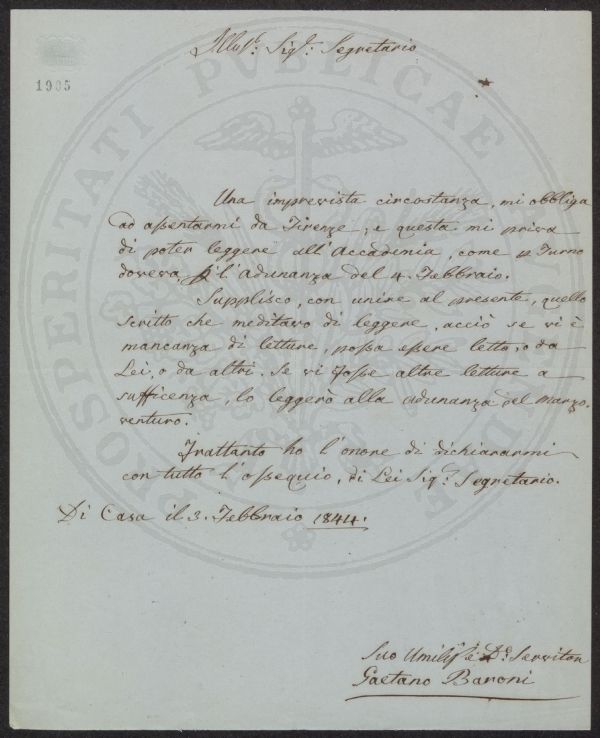 Illus.º Sig.r Segretario
1905
PROSPERITATI PVBLICAE
Una imprevista circostanza, mi obbliga
ad assentarmi da Firenze, e questa mi priva
di poter leggere all'Accademia, come p Turno
doveva, p l'adunanza del 4. Febbraio.
Supplisco, con unire al presente, quello
scritto che meditavo di leggere, acciò se vi è
mancanza di letture, possa essere letto, o da
Lei, o da altri. Se vi fosse altre letture a
sufficenza, lo leggerò alla adunanza del marzo
venturo.
Frattanto ho l'onore di dichiararmi
con tutto l'ossequio, di Lei Sig.r Segretario.
Di Casa il 3. Febbraio 1844.
Suo Umiliss.º e D.º Servitor
Gaetano Baroni